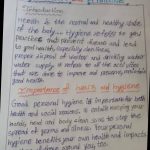 Introduction
Health is the normal and healthy state
of the body. Hygiene refers to good
practices that prevent disease and lead
to good health, especially cleanliness,
proper disposal of wastes and drinking
water supply. It refers to all the
that are done to improve and preserve/maintain
good health.
Importance of health and hygiene
Good personal hygiene is important for both
health and social reasons. It entails keeping your
hands, head and body clean so as to stop the
spread of germs and illness. Your personal
hygiene benefits your own health and impacts
the lives of those around you too.